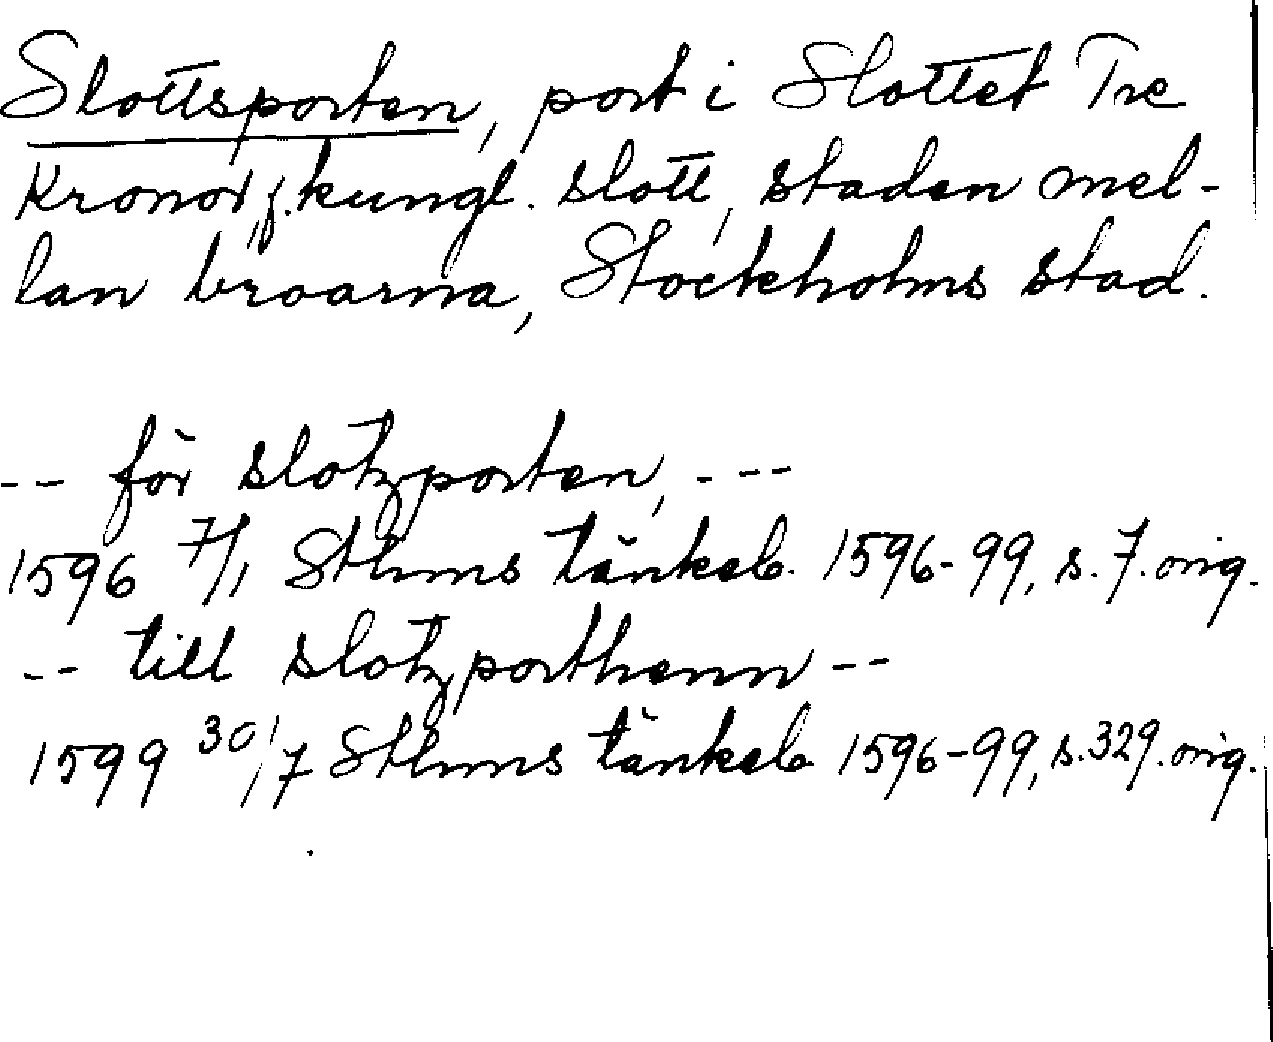 Slottsporten, port i Slottet Tre
Kronor, f. kungl. slott, staden mel-
lan broarna, Stockholms stad.
-- för slotzporten, - --
1596 7/1 Sthms tänkeb. 1596-99, s. 7. orig.
-- till slotzporthenn --
1599 30/7 Sthms tänkeb 1596-99, s. 329. orig.